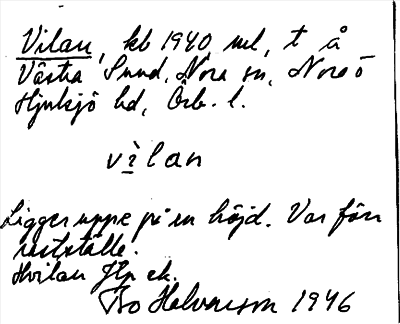 Vilan, kb 1940, nel, t å
Västra Sund, Nora sn, Nora o
Hjulsjö hd, Örb. l.
vìlan
Ligger uppe på en höjd. Var förr
rastställe.
Hvilan Hp ek.
Bo Halvarsson 1946